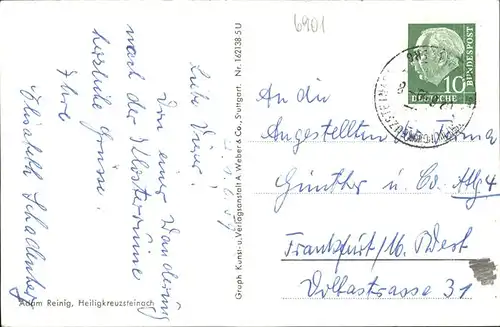 6901
Liebe Dieser!
Von einer Wanderung
nach der Klosterruine
herzliche Grüsse.
Ihre
Elisabeth
1.6.59
Adam Reinig, Heiligkreuzsteinach
Graph. Kunst- u. Verlagsanstalt A. Weber & Co., Stuttgart. Nr. 162138.5 U
DEUTSCHE BUNDESPOST
10
An die
Angestellten der Firma
Günther u. Co. Abtlg. 4
Frankfurt/M. West
Voltastrasse 31